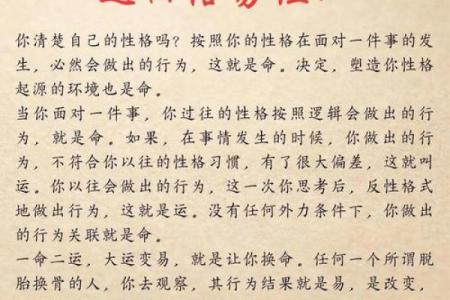 你清楚自己的性格吗？按照你的性格在面对一件事的发
生，必然会做出的行为，这就是命。决定，塑造你性格
起源的环境也是命。
当你面对一件事，你过往的性格按照逻辑会做出的行
为，就是命。如果，在事情发生的时候，你做出的行
为，不符合你以往的性格习惯，有了很大偏差，这就叫
运。你以往会做出的行为，这一次你思考后，反性格式
地做出行为，这就是运。没有任何外力条件下，你做出
的行为关联就是命。
一命二运，大运变易，就是让你换命。任何一个所谓脱
胎换骨的人，你去观察，其行为结果就是易，是改变，